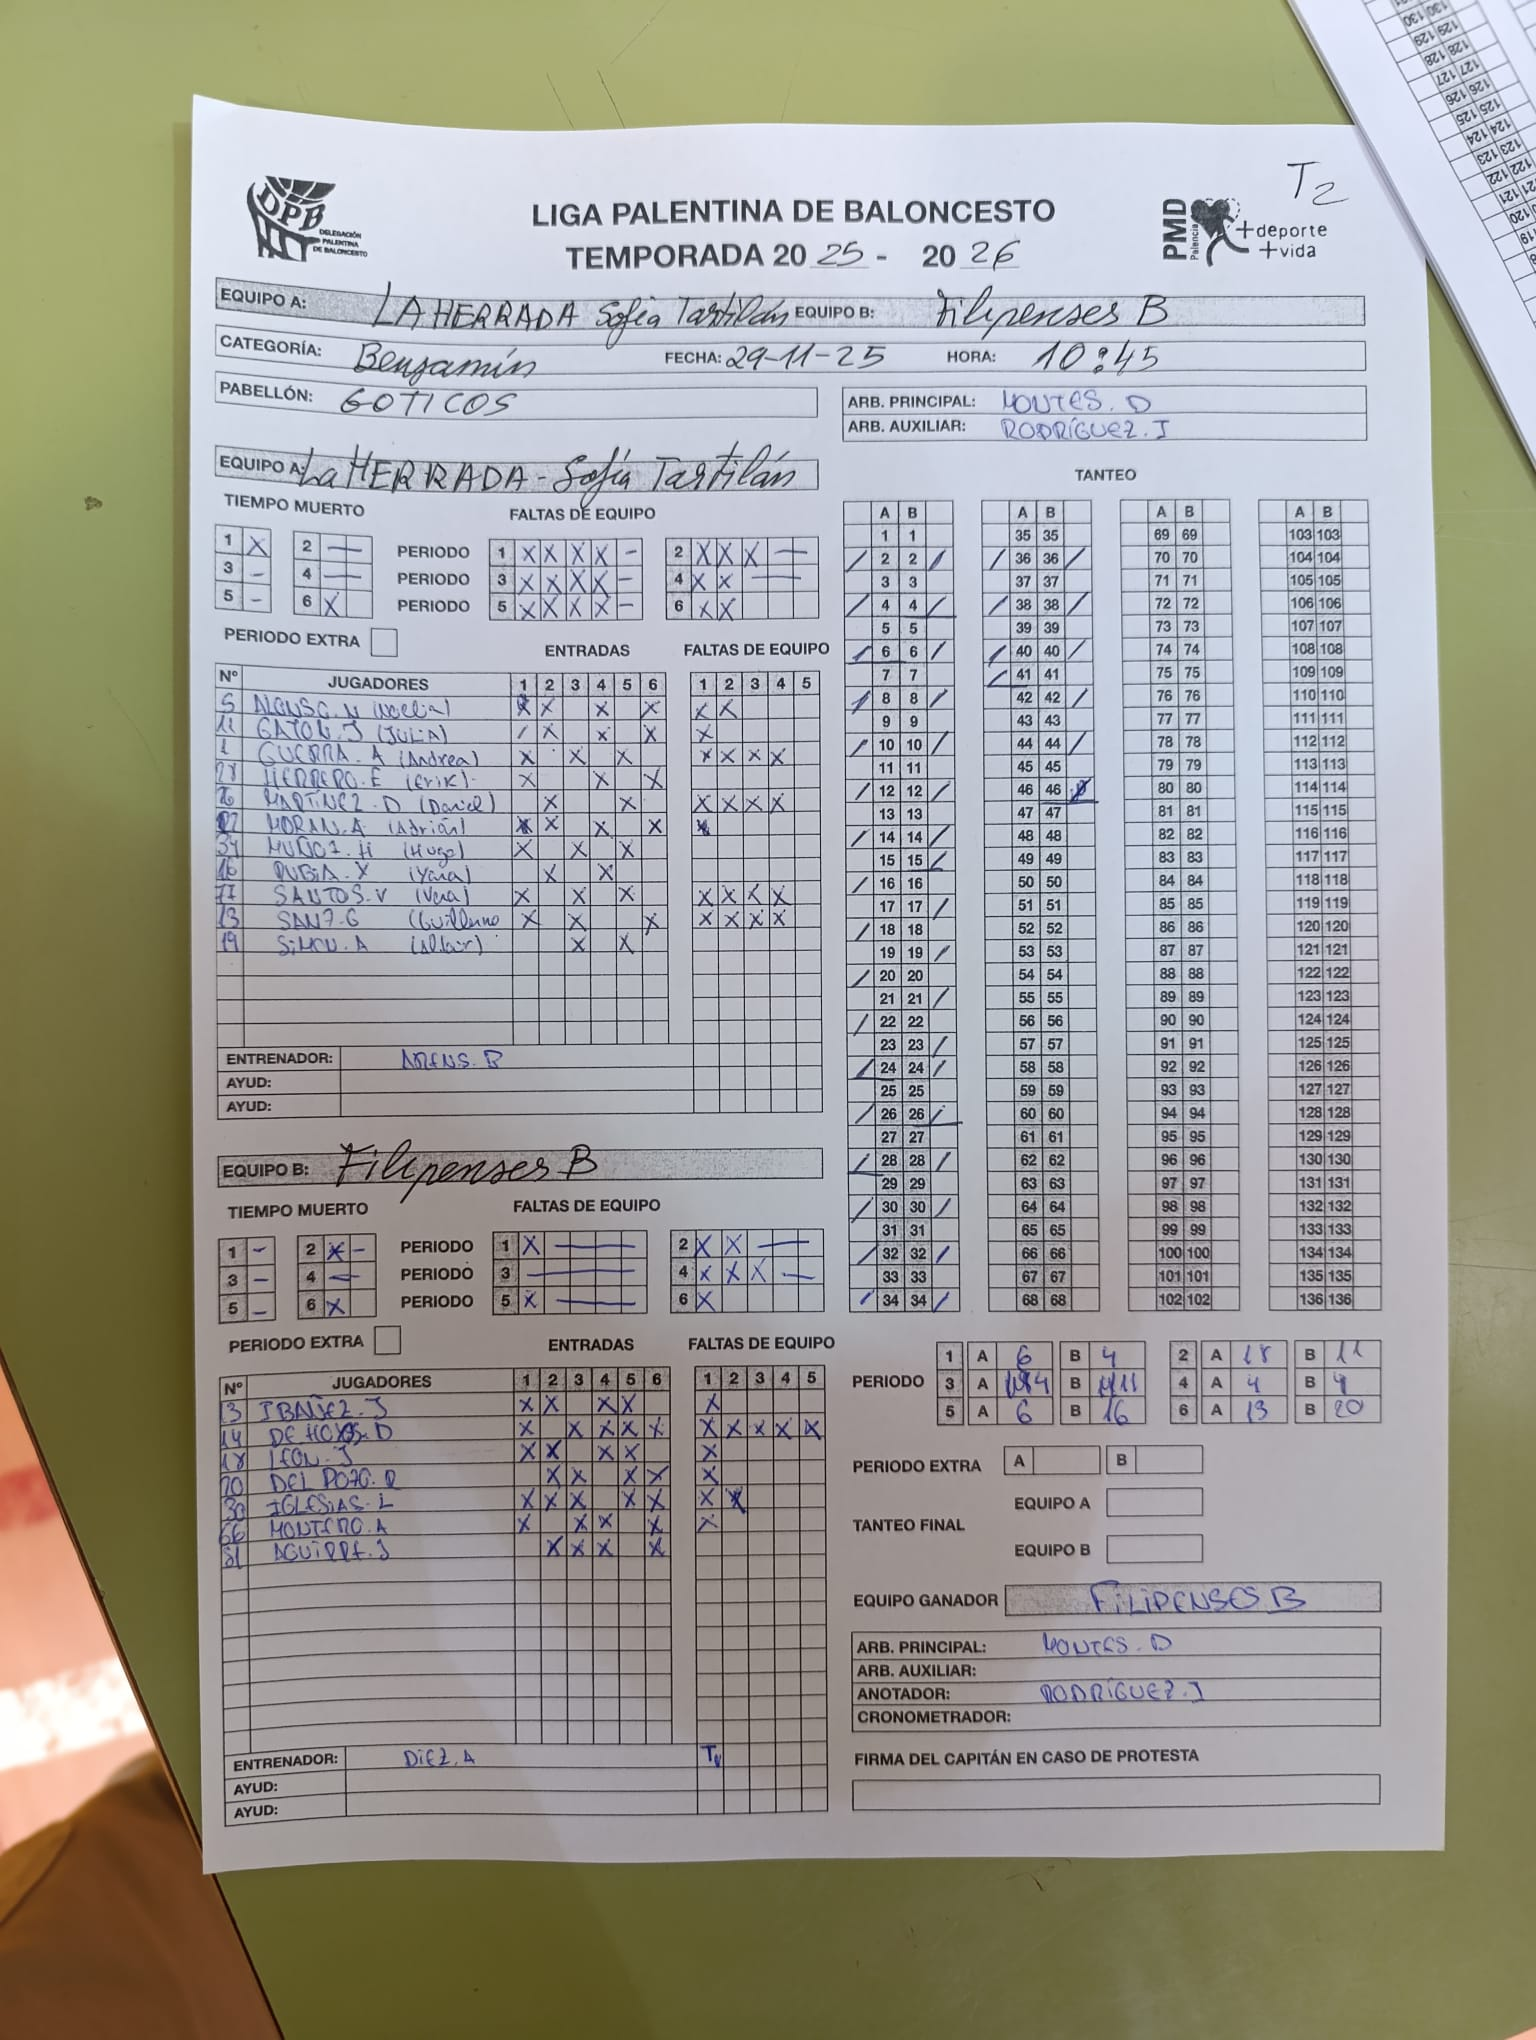 T2
DPB
DELEGACIÓN
PALENTINA
DE BALONCESTO
LIGA PALENTINA DE BALONCESTO
TEMPORADA 20 25 - 20 26
PMD
Palencia
+deporte
+vida
EQUIPO A: LA HERRADA Sofía Tartilán EQUIPO B: Filipenses B
CATEGORÍA: Benjamín FECHA: 29-11-25 HORA: 10:45
PABELLÓN: GOTICOS
ARB. PRINCIPAL: MONTES. D
ARB. AUXILIAR: RODRÍGUEZ. J
EQUIPO A: La HERRADA - Sofía Tartilán
TIEMPO MUERTO FALTAS DE EQUIPO
1 X 2 — PERIODO 1 X X X X – 2 X X X —
3 – 4 — PERIODO 3 X X X X – 4 X X —
5 – 6 X PERIODO 5 X X X X – 6 X X
PERIODO EXTRA ENTRADAS FALTAS DE EQUIPO
Nº JUGADORES 1 2 3 4 5 6 1 2 3 4 5
5 ALONSO. N (Noelia) X X X X X X
11 GATON. J (JULIA) / X X X X
1 GUERRA. A (Andrea) X X X X X X X
28 HERRERO. E (Erik) X X X
MARTÍNEZ. D (Daniel) X X X X X X
MORAN. A (Adrián) X X X X X
34 MUÑOZ. H (Hugo) X X X
16 RUBIA. Y (Yara) X X
77 SANTOS. V (Vera) X X X X X X X
13 SANZ. G (Guillermo X X X X X X X
19 SIMON. A (Altair) X X
ENTRENADOR: ARENS. B
AYUD:
AYUD:
EQUIPO B: Filipenses B
TIEMPO MUERTO FALTAS DE EQUIPO
1 – 2 X – PERIODO 1 X — 2 X X —
3 – 4 – PERIODO 3 — 4 X X X —
5 – 6 X PERIODO 5 X — 6 X
PERIODO EXTRA ENTRADAS FALTAS DE EQUIPO
Nº JUGADORES 1 2 3 4 5 6 1 2 3 4 5
13 IBAÑEZ. J X X X X X
14 DE HOYOS. D X X X X X X X X X X
18 LEON. J X X X X X
20 DEL POZO. R X X X X X
30 IGLESIAS. L X X X X X X X
66 MONTERO. A X X X X X
81 AGUIRRE. J X X X X
ENTRENADOR: DIEZ. A T
AYUD:
AYUD:
TANTEO
A B A B A B A B
1 1 35 35 69 69 103 103
2 2 36 36 70 70 104 104
3 3 37 37 71 71 105 105
4 4 38 38 72 72 106 106
5 5 39 39 73 73 107 107
6 6 40 40 74 74 108 108
7 7 41 41 75 75 109 109
8 8 42 42 76 76 110 110
9 9 43 43 77 77 111 111
10 10 44 44 78 78 112 112
11 11 45 45 79 79 113 113
12 12 46 46 80 80 114 114
13 13 47 47 81 81 115 115
14 14 48 48 82 82 116 116
15 15 49 49 83 83 117 117
16 16 50 50 84 84 118 118
17 17 51 51 85 85 119 119
18 18 52 52 86 86 120 120
19 19 53 53 87 87 121 121
20 20 54 54 88 88 122 122
21 21 55 55 89 89 123 123
22 22 56 56 90 90 124 124
23 23 57 57 91 91 125 125
24 24 58 58 92 92 126 126
25 25 59 59 93 93 127 127
26 26 60 60 94 94 128 128
27 27 61 61 95 95 129 129
28 28 62 62 96 96 130 130
29 29 63 63 97 97 131 131
30 30 64 64 98 98 132 132
31 31 65 65 99 99 133 133
32 32 66 66 100 100 134 134
33 33 67 67 101 101 135 135
34 34 68 68 102 102 136 136
1 A 6 B 4 2 A 18 B 11
PERIODO 3 A 4 B 11 4 A 4 B 4
5 A 6 B 16 6 A 13 B 20
PERIODO EXTRA A B
TANTEO FINAL
EQUIPO A
EQUIPO B
EQUIPO GANADOR FILIPENSES B
ARB. PRINCIPAL: MONTES. D
ARB. AUXILIAR:
ANOTADOR: RODRÍGUEZ. J
CRONOMETRADOR:
FIRMA DEL CAPITÁN EN CASO DE PROTESTA